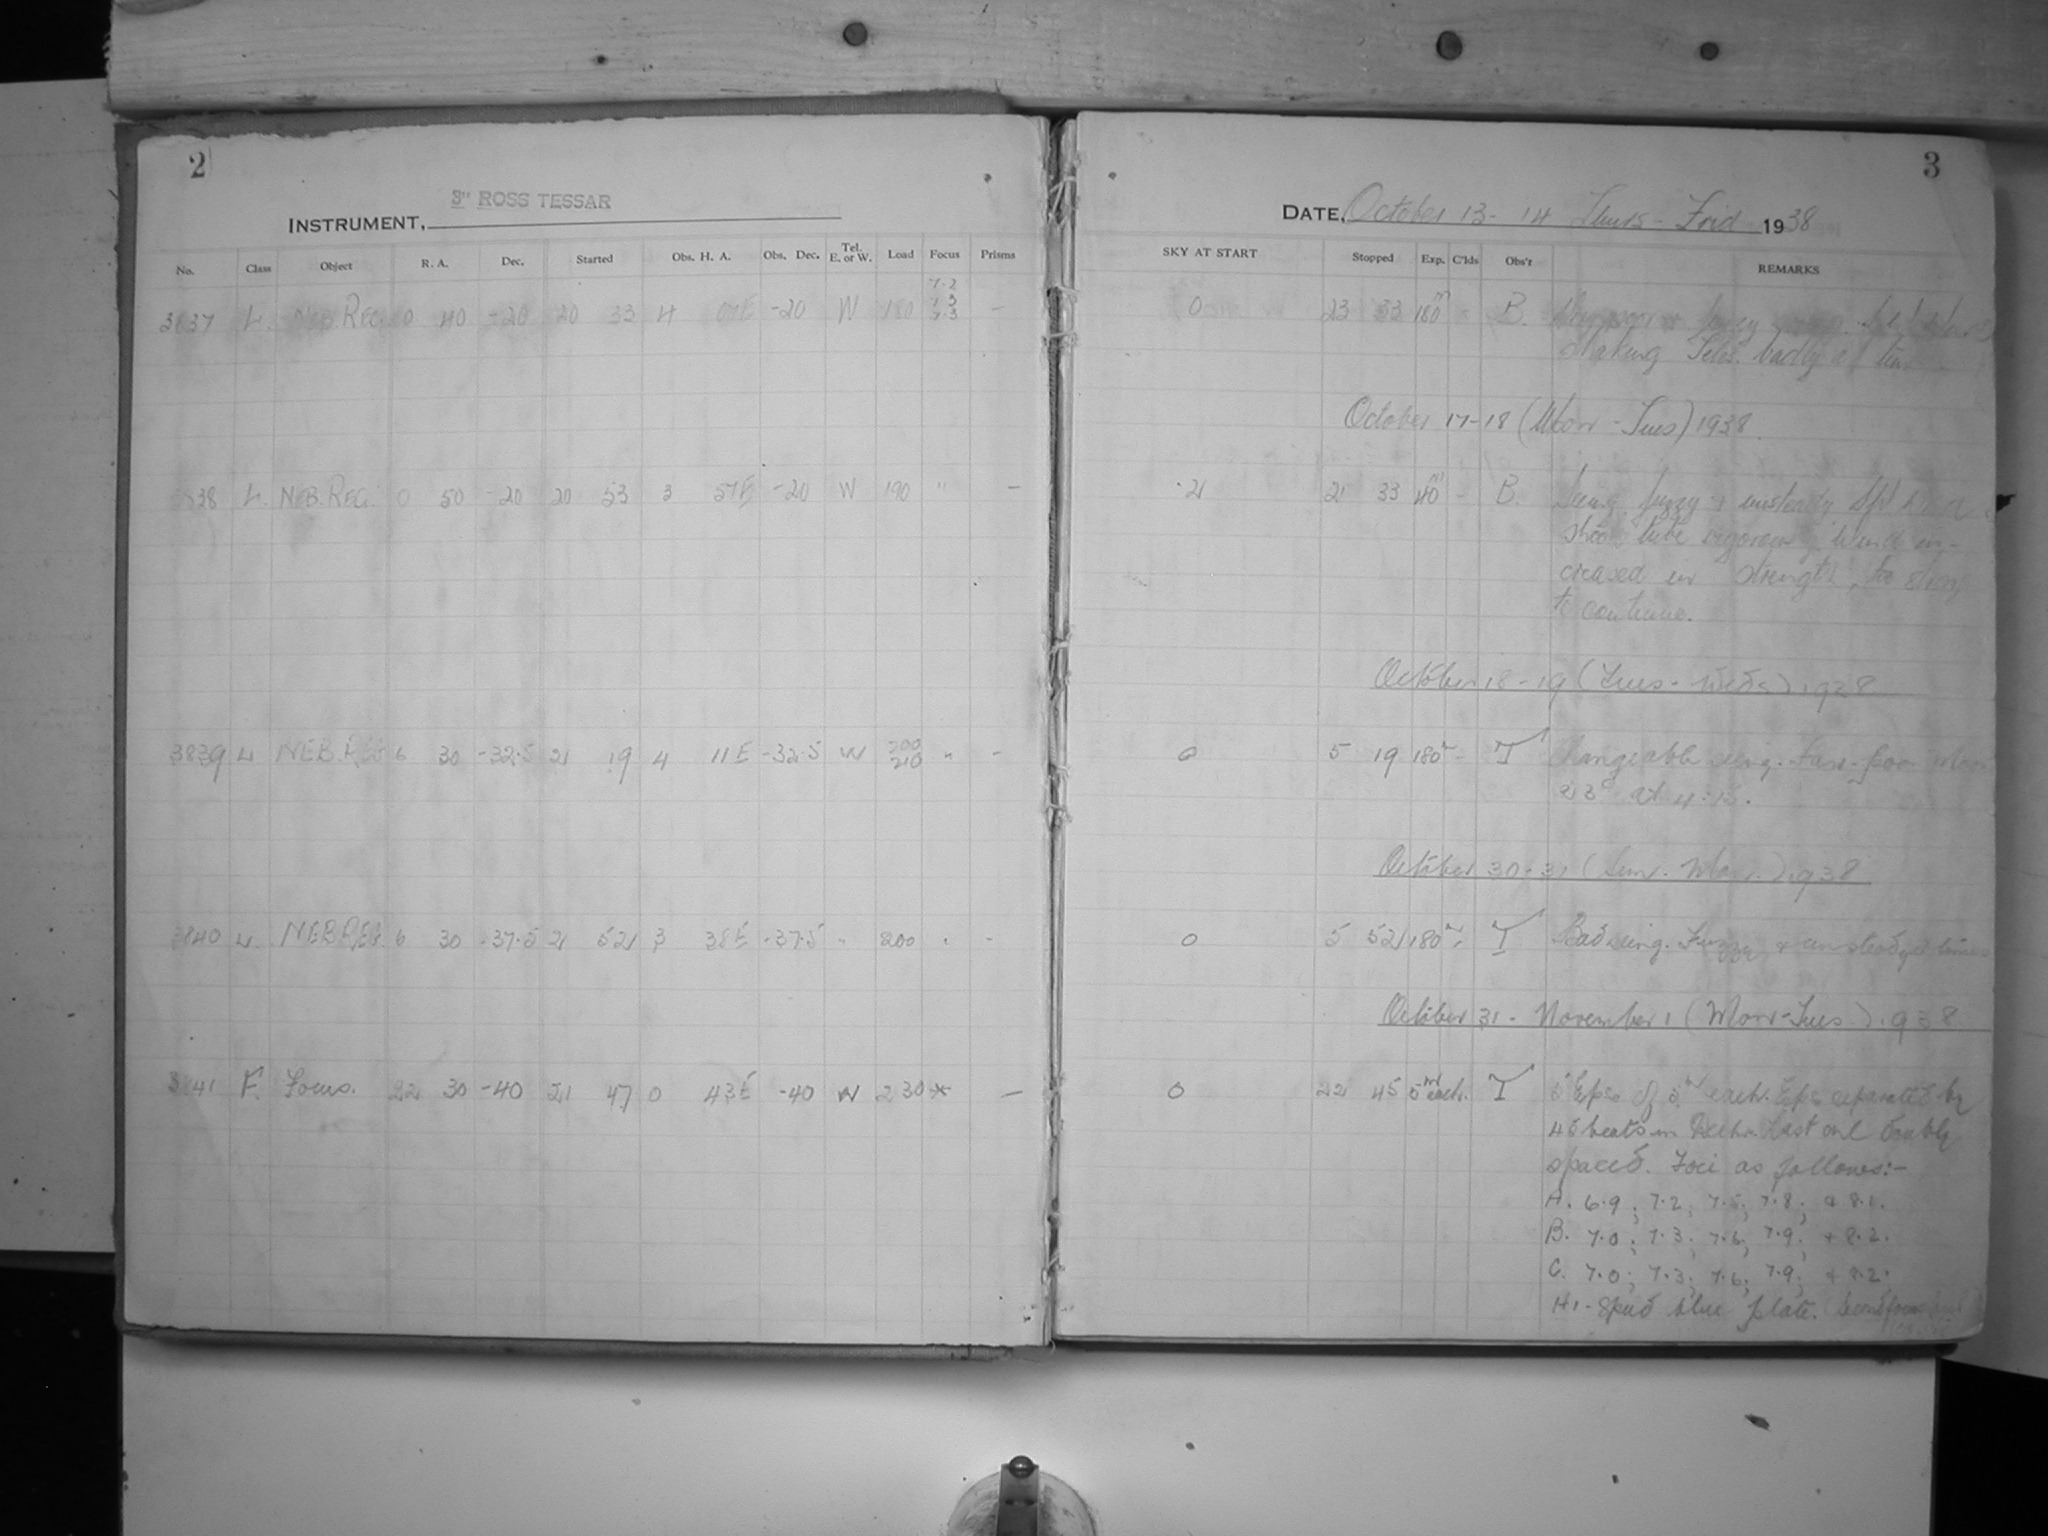 2
3" ROSS TESSAR
INSTRUMENT,
No. Class Object R. A. Dec. Started Obs. H. A. Obs. Dec. Tel. E. or W. Load Focus Prisms
7.2
7.3
7.3
3837 L. NEB. REG. 0 40 -20 20 33 4 07E -20 W 180 —
3838 L. NEB. REG. 0 50 -20 20 53 3 57E -20 W 190 " —
3839 L NEB. REG 6 30 -32.5 21 19 4 11E -32.5 W 200 210 " -
3840 L. NEB REG. 6 30 -37.5 21 52 3 38E -37.5 " 200 " -
3841 F. Focus. 22 30 -40 21 47 0 43E -40 W 230 * —
3
DATE, October 13 - 14 Thurs - Frid 1938
SKY AT START Stopped Exp. C'lds Obs'r REMARKS
0 23 33 180m - B. Very poor & fuzzy
shaking Teles. badly at
October 17-18 (Mon - Tues) 1938.
2 21 33 40m - B. Seeing fuzzy & unsteady
shook tube vigorously wind in-
creased in strength, too strong
to continue.
October 18 - 19 (Tues - Weds) 1938
0 5 19 180m - T Changeable seeing. Fair - poor
23° at 4:15.
October 30 - 31 (Sun. Mon.) 1938
0 5 52 180m - T Bad seeing. Fuzzy & unsteady at times
October 31 - November 1 (Mon - Tues) 1938
0 22 45 5m each. T 5 Exps. of 5m each. Exps separated by
45 beats in Decln. Last one double
spaced. Foci as follows:-
A. 6.9; 7.2; 7.5; 7.8; & 8.1.
B. 7.0; 7.3; 7.6; 7.9; & 8.2.
C. 7.0; 7.3; 7.6; 7.9; & 8.2.
Hi-Speed blue plate.